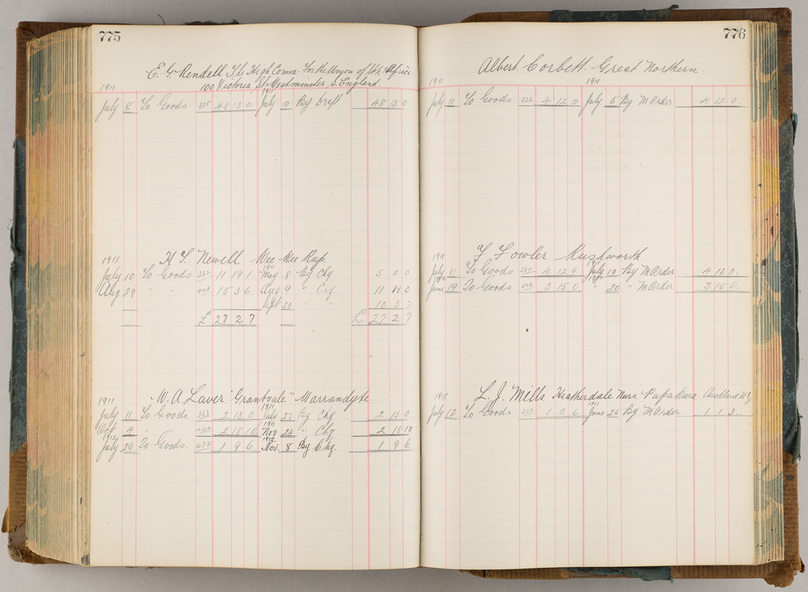 775
E. G. Rendell High Com for the Union of Sth Africa
1911 100 Victoria St Westminster S. England
July 8 To Goods 48 12 0 July 10 By Drft 48 12 0
1911 H. S. Newell Wee Wee Rup
July 10 To Goods 11 19 1 May 8 By Chq 5 0 0
Aug 29 " " 15 3 6 Aug 9 " Chq 11 11 0
Sept 20 " " 10 3 7
£ 27 2 7 £ 27 2 7
1911 W. A. Laver "Grantsale" Warrandyte
July 11 To Goods 2 12 0 July 27 By Chq 2 12 0
Oct 4 " " 2 18 10 Nov 24 " Chq 2 18 10
1912 July 29 To Goods 1 9 6 1912 Nov 8 By Chq 1 9 6
776
Albert Corbett Great Northern
1911 1911
July 11 To Goods 4 12 0 July 5 By M Order 4 12 0
1911 F Fowler Rushworth
July 11 To Goods 4 12 9 July 10 By M Order 4 12 0
June 19 To Goods 3 15 0 " 20 " M Order 3 15 0
1911 L. J. Mills Heatherdale Papakura Auckland N.Z.
July 12 To Goods 1 0 6 1911 June 26 By M Order 1 1 3